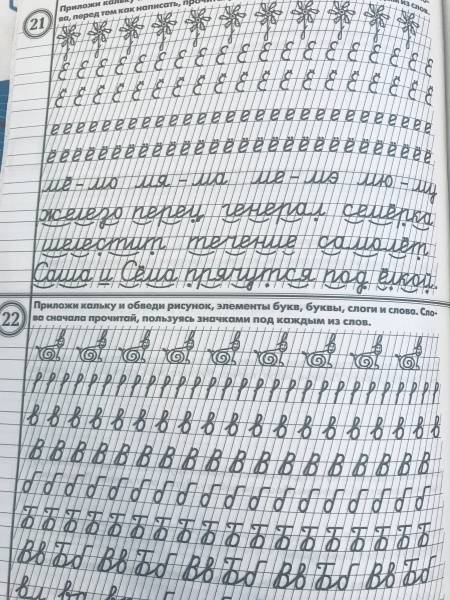 21
Приложи кальку
из слов.
ва, перед тем как написать,
Е Е Е Е Е Е Е Е Е Е Е Е Е Е Е Е Е Е Е
Ё Ё Ё Ё Ё Ё Ё Ё Ё Ё Ё Ё Ё Ё Ё Ё Ё Ё Ё
е е е е е е е е е е е е е е е е е е е е е е е е
ё ё ё ё ё ё ё ё ё ё ё ё ё ё ё ё ё ё ё ё ё ё ё ё
мё – мо мя – ма ме – мэ мю – му
железо перец генерал семёрка
шелестит течение самолёт
Саша и Сёма прячутся под ёлкой.
22
Приложи кальку и обведи рисунок, элементы букв, буквы, слоги и слова. Сло-
ва сначала прочитай, пользуясь значками под каждым из слов.
в в в в в в в в в в в в в в в в в в
В В В В В В В В В В В В В В В В В
б б б б б б б б б б б б б б б б б б б б
Б Б Б Б Б Б Б Б Б Б Б Б Б Б Б Б Б
Вв Бб Вв Бб Вв Бб Вв Бб